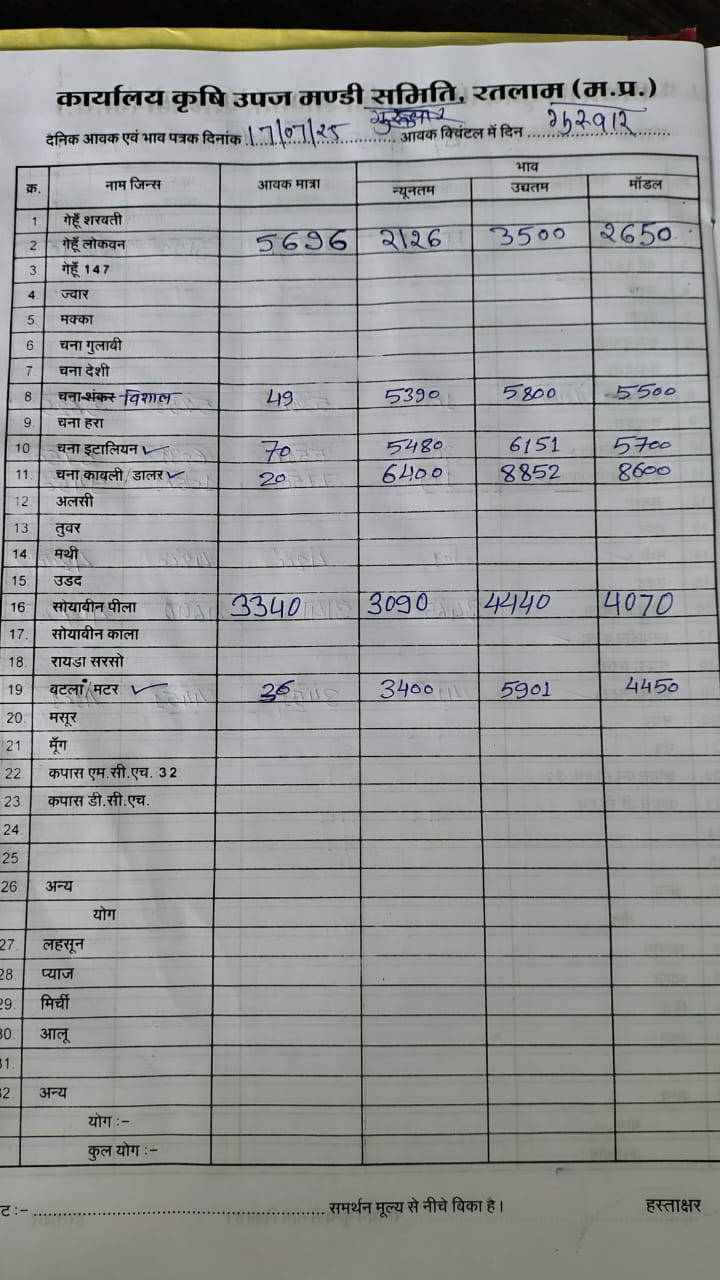 कार्यालय कृषि उपज मण्डी समिति, रतलाम (म.प्र.)
गुरुवार
दैनिक आवक एवं भाव पत्रक दिनांक 17/07/25 आवक क्विंटल में दिन गुरुवार
क्र. नाम जिन्स आवक मात्रा भाव
न्यूनतम उच्चतम मॉडल
1 गेहूँ शरबती
2 गेहूँ लोकवन 5696 2126 3500 2650
3 गेहूँ 147
4. ज्वार
5. मक्का
6 चना गुलाबी
7. चना देशी
8 चना शंकर विशाल 49 5390 5800 5500
9. चना हरा
10 चना इटालियन ✓ 70 5480 6151 5700
11. चना काबली/डालर ✓ 20 6400 8852 8600
12. अलसी
13 तुवर
14. मथी
15 उडद
16 सोयाबीन पीला 3340 3090 4440 4070
17. सोयाबीन काला
18. रायडा सरसो
19 बटला/मटर ✓ 36 3400 5901 4450
20. मसूर
21 मूँग
22 कपास एम.सी.एच. 32
23 कपास डी.सी.एच.
24
25
26 अन्य
योग
27 लहसून
28. प्याज
29. मिर्ची
30. आलू
31.
32. अन्य
योग :-
कुल योग :-
ट :- .................................................. समर्थन मूल्य से नीचे बिका है। हस्ताक्षर